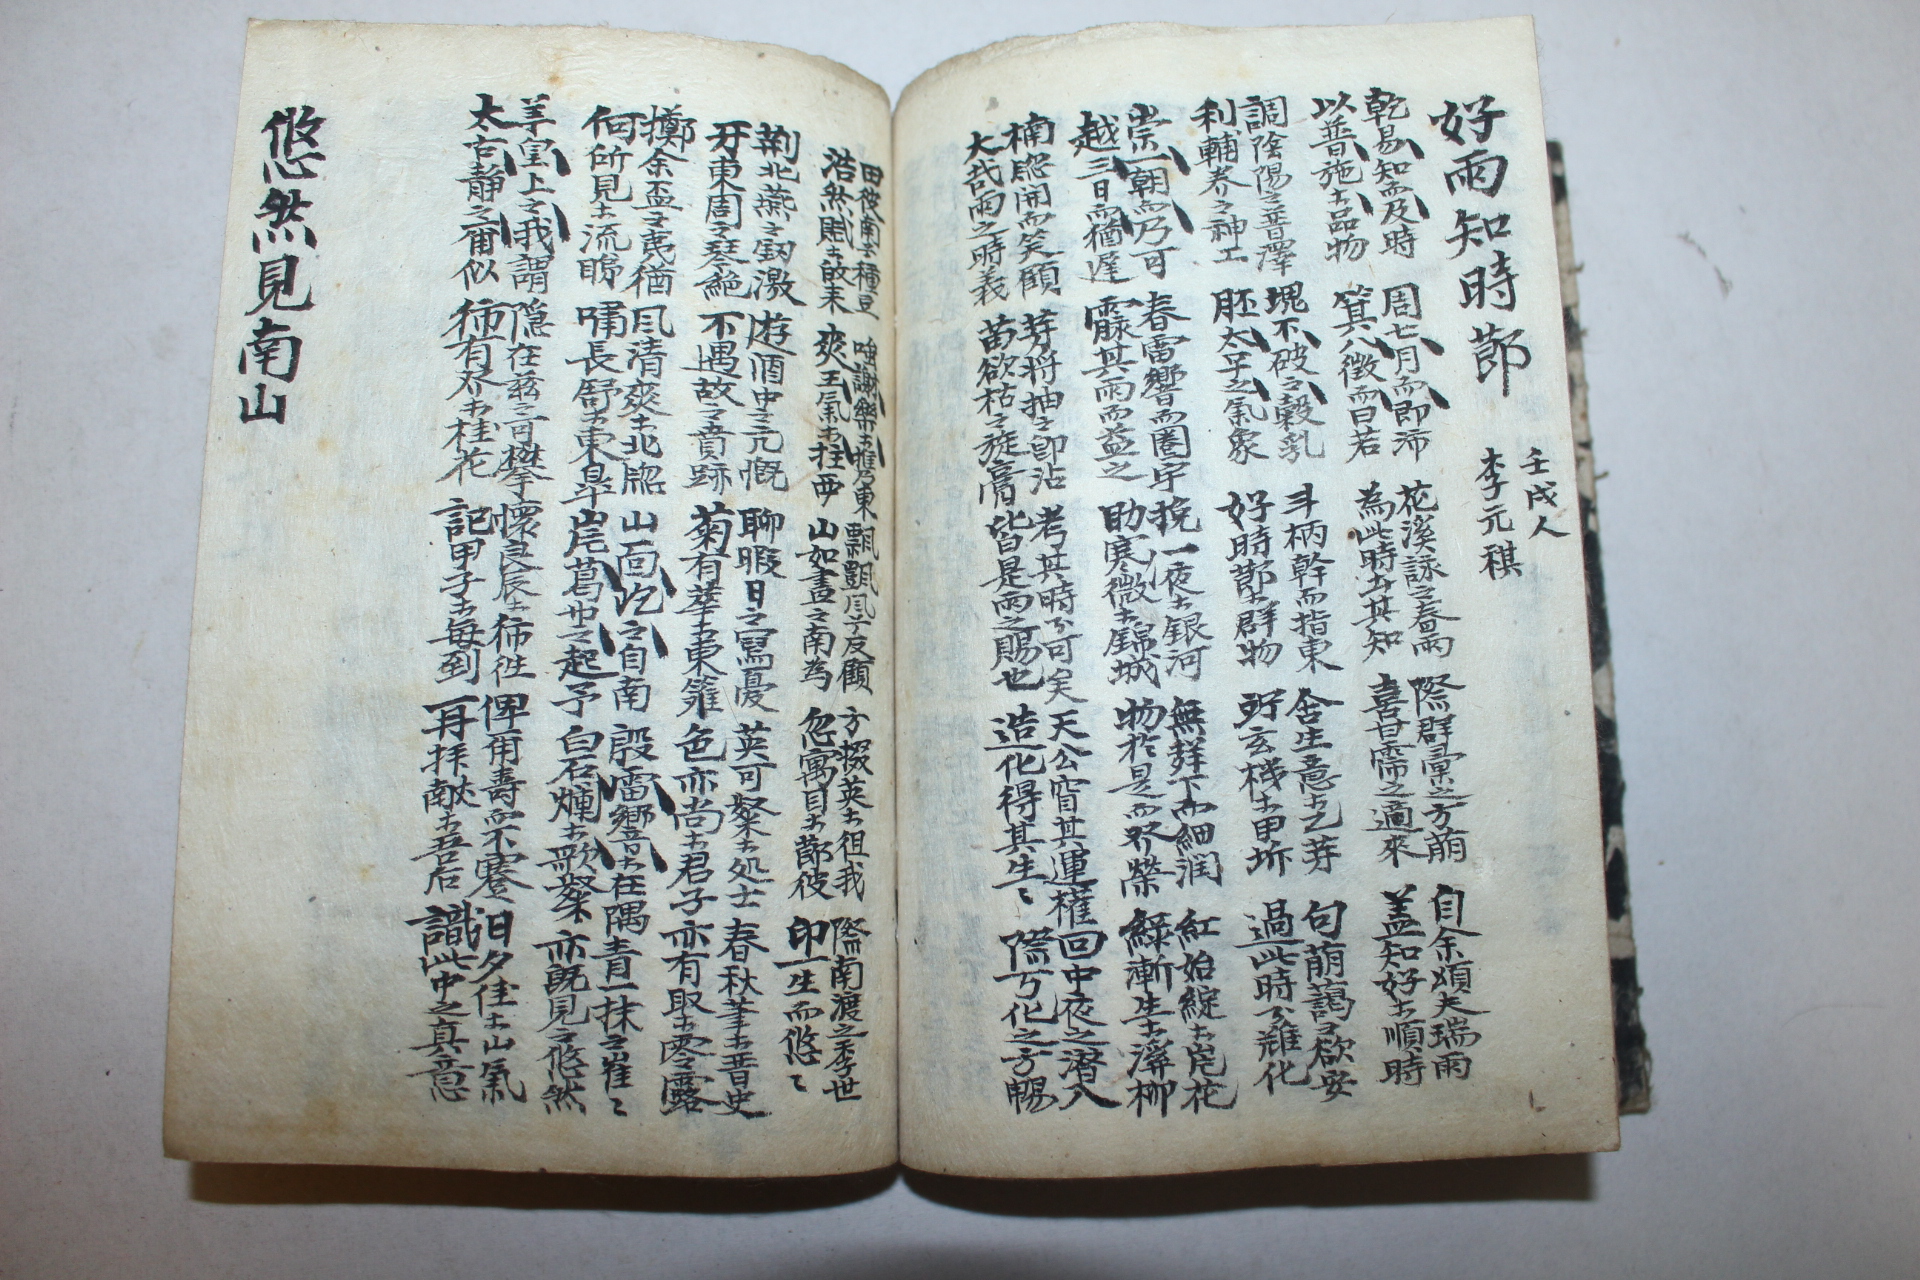 好雨知時節
壬戌人
李元祺
乾易知而及時 周七月而即沛 花溪詠之春雨 際群彙之方萌 自余頌夫瑞雨
以普施土品物 箕八徵而曰若 為此時土其知 喜甘霈之適來 盖知好土順時
調陰陽之普澤 塊不破之穀乳 斗柄幹而指東 含生意土芽 句萌藹欲安
利輔養之神工 胚太乎之氣象 好時節土群物 玄機土甲坼 過此時難化
崇一朝而乃可 春雷響而圈宇 挽一夜土銀河 無聲下而細润 紅始綻土花
越三日而猶遲 霡其雨而益之 助寒微土錦城 物於是而榮 綠漸生土潭柳
楠牕開而笑顧 芽將抽之卽沾 考其時可矣 天公宵其運權 回中夜之潛入
大哉雨之時義 苗欲枯之旋膏 皆是雨之賜也 造化得其生〻 際万化之方暢
田後南土種豆 嗤謝樂土携東 飄颻風子反顧 方掇英土徂我 際南渡之季世
浩然賦土故來 爽玉氣土拄西 山如畫之南為 忽寓目土節彼 印一生而悠〻
荆北燕之釼激 遊酒中之元慨 聊暇日之寫憂 英可粲土処士 春秋筆土晋史
牙東周之琴絶 不遇故之賁跡 菊有華土東籬 色亦尚土君子 亦有取土零露
擲余盃之夷猶 風清爽土北牕 山一面屹之自南 殷雷響土在隅 青一抹之崔〻
何所見土流眄 嘯長舒土東皐 葛也之起予 白石爛土歌粲 亦既見之悠然
羊皇上之我謂 隱在兹之可攀 懷良辰土徜徃 俾爾壽而不騫 汩夕佳土山氣
太古靜之爾似 有土桂花 記甲子土每到 一再拜献土吾后 識此中之真意
悠然見南山